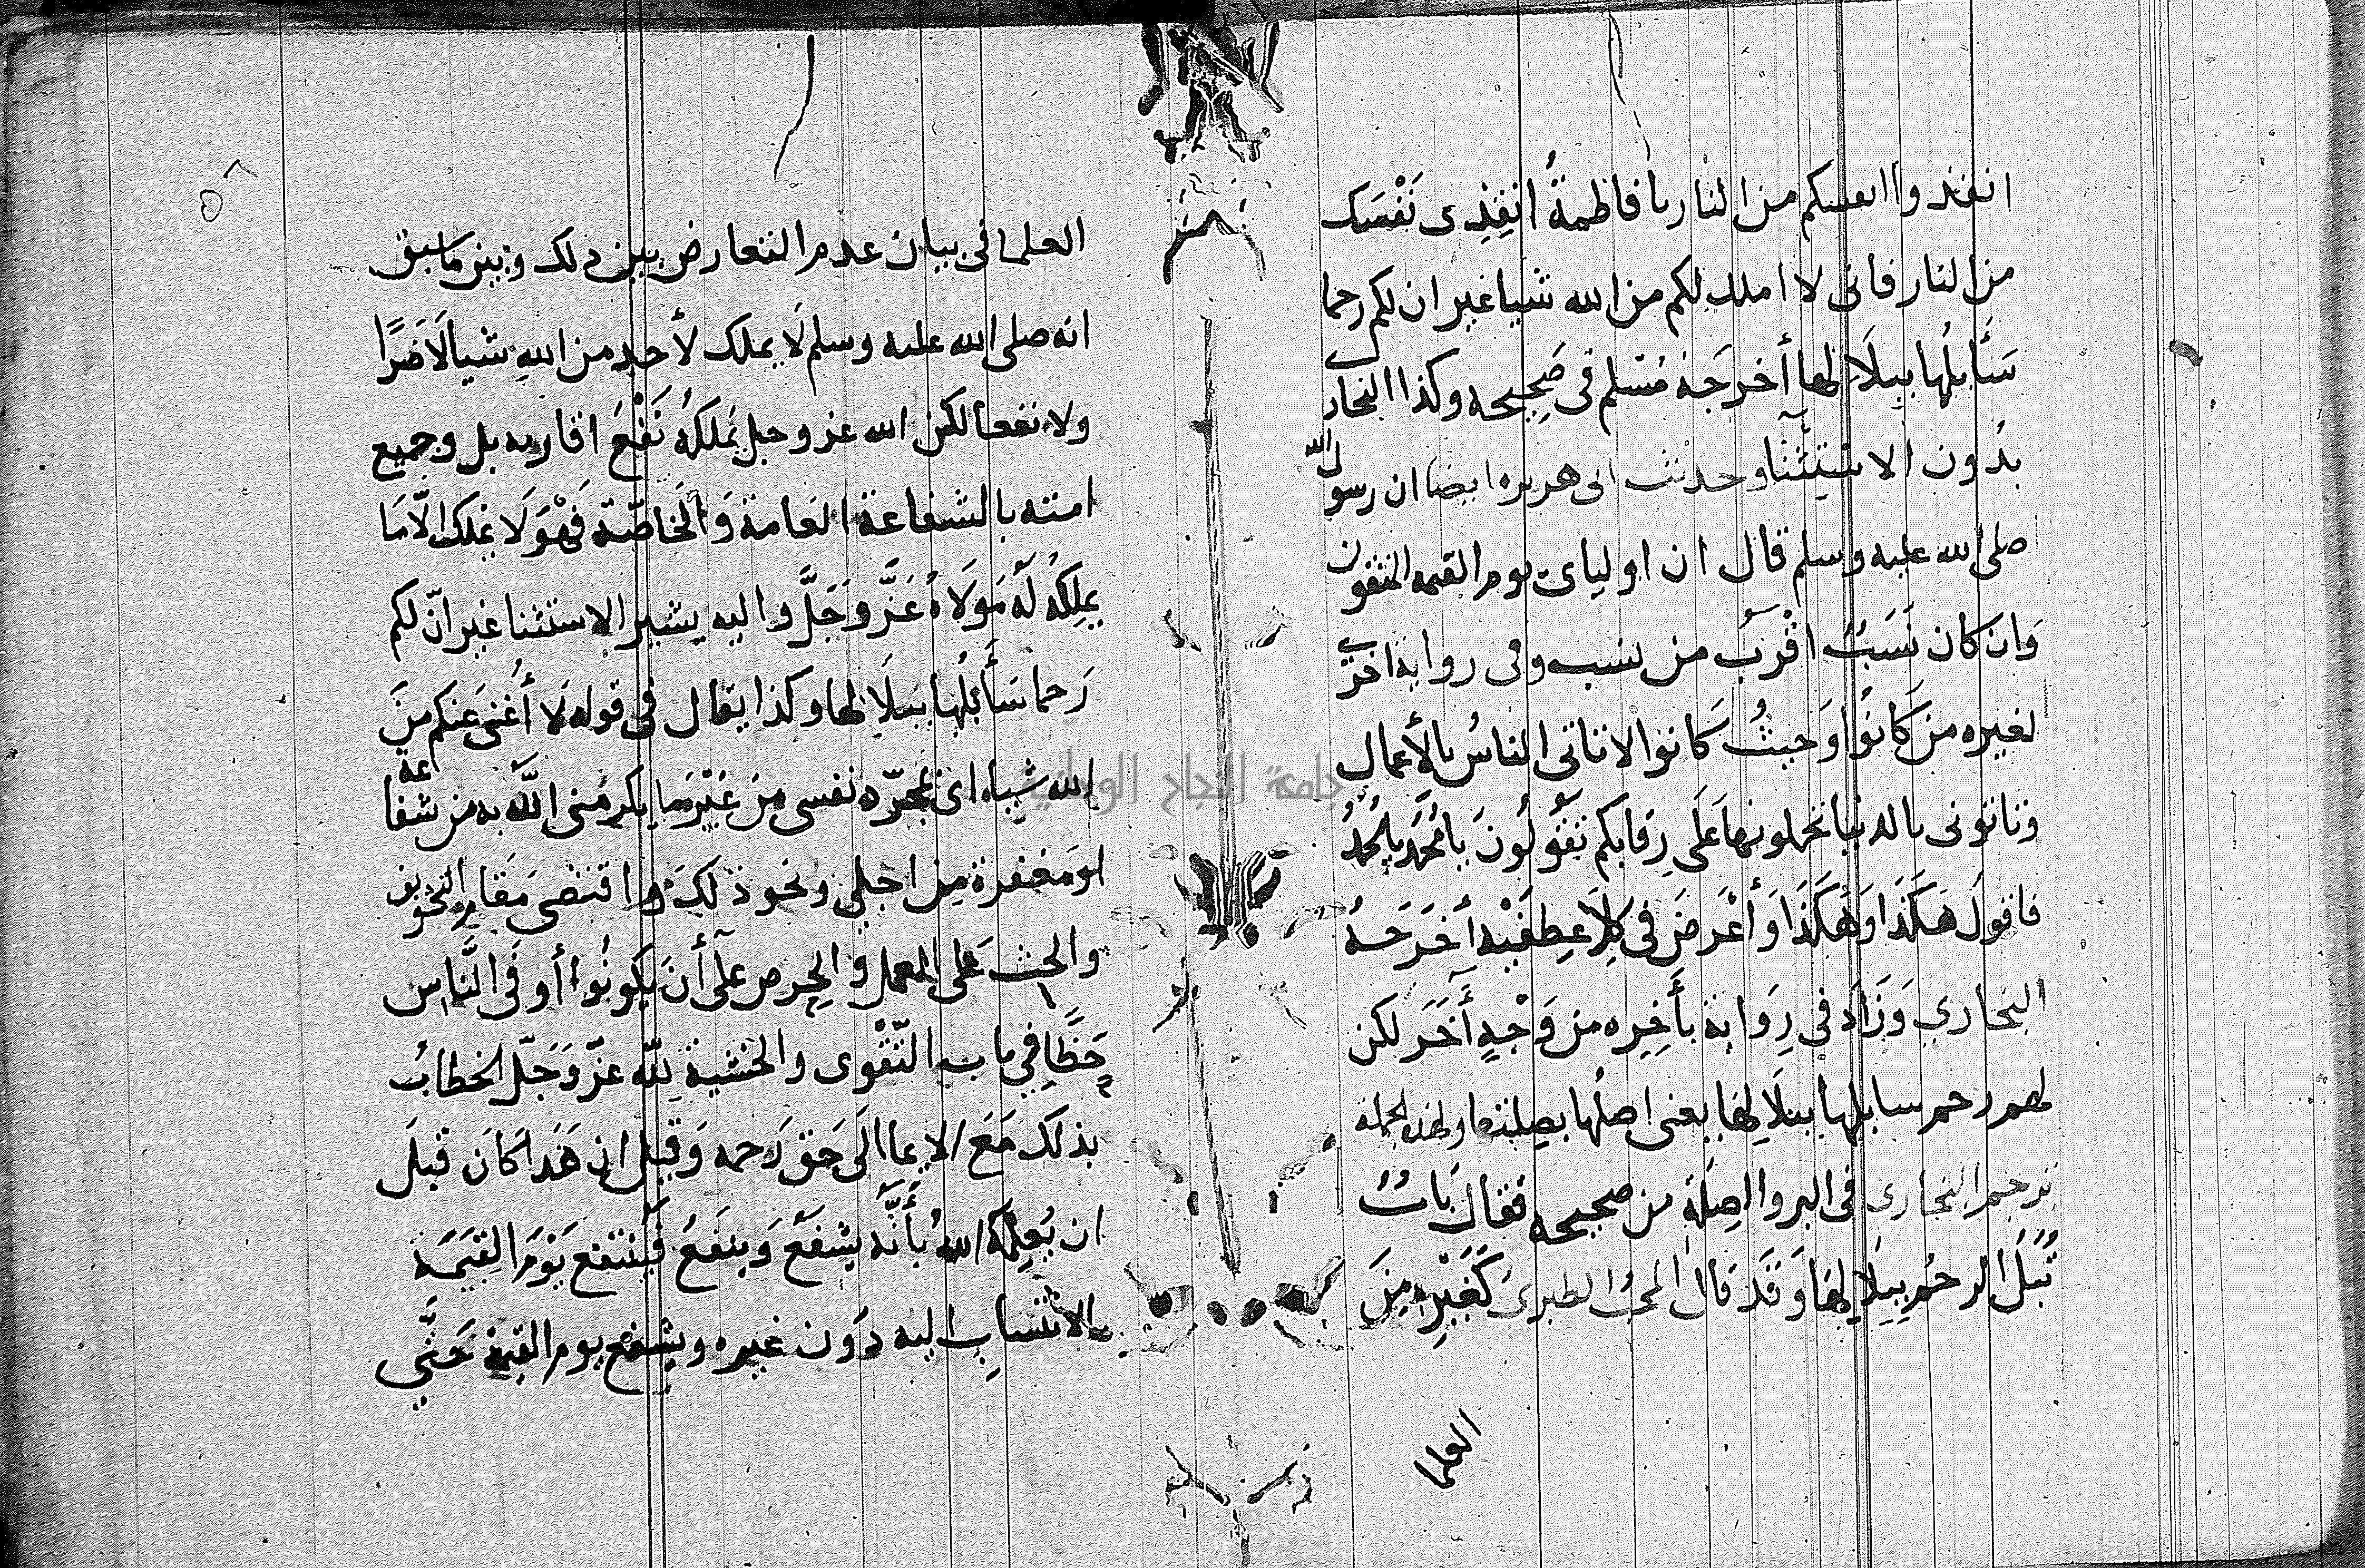 انقذوا انفسكم من النار يا فاطمةُ انقِذِى نَفْسَك
من النار فانى لا املك لكم من الله شيا غير ان لكم رحما
سَأَبلُها ببِلَالِها أخرجَهُ مُسْلم فى صَحِيحه وكذا البخارى
بدُون الاستِثنا وحديث ابى هريره ايضا ان رسول الله
صلى الله عليه وسلم قال ان اوليائ يوم القيمه المتقون
وَان كان نَسَبٌ اقْرَبُ من نسب وفى رواية اخرى
لغيره من كانوُا وَحيثُ كانوا لا تاتى الناسُ بالأعمال
وتاتونى بالدنيا تحملونها عَلَى رِقابكم تَقُولُونَ يا مُحَمَّد يا مُحَمَّدُ
فاقول هَكَذَا وَهَكَذَا وَأعْرَضَ فى كِلَا عِطفَيْه أخرَجَهُ
البخارى وَزَادَ فى رِوَاية بأَخِره من وَجْهٍ أَخَر لكن
لهم رحم سابلها ببلَالِها يعنى اصلُها بصِلتها ولهذه الجملة
ترجم البخارى فى البر والصِلةِ من صحيحه فقال بَابٌ
تُبَلُّ الرحُم ببِلَالِها وَقَد قال المحبُ الطبرىُ كَغَيْرِه مِنَ
العلما
٥٦
العلما فى بيان عدم التعارض بين ذلك وبين ما سبق
انه صلى الله عليه وسلم لَا يملك لأحدٍ من اللهِ شيا لَا ضَرًا
ولا نفعا لكن الله عز وجل يُملكُه نَفْعَ اقاربه بل وجميع
امته بالشفاعة العَامة وَالخَاصّة فَهْوَ لَا يملك الّا مَا
يملِكُه لَهُ مَوَلَاهُ عَزَّ وَجَلَّ واليه يشير الاستثنا غير انّ لكم
رَحما سَأَبلُها ببِلَالِها وكذا يقال فى قوله لَا أُغنى عَنكم مِنَ
الله شيا اى بمجرّد نفسى مِن غَيْر ما يكرمُنى اللَّهُ به من شفاعة
او مَغفرة مِن اجلى ونحو ذلكَ واقتضى مَقام التخويف
والحث عَلى العمل والحِرص عَلَى أن يَكونوُا أوفَى النَّاس
حَظًا فى باب التّقْوى والخشيةِ للّه عزّ وَجَلّ الخطابُ
بذلك مَعَ الايما الَى حَق رَحمه وَقيل ان هَذا كانَ قبلَ
ان يُعِلمَهُ اللهُ بأَنَّهُ يشفَعُ وَينفعُ فَينتفع يَوْمَ القِيَمَة
بالانتسَابِ اليه دوُن غيره ويشفع يوم القيمة حَتَّى
جامعة النجاح الوطنية